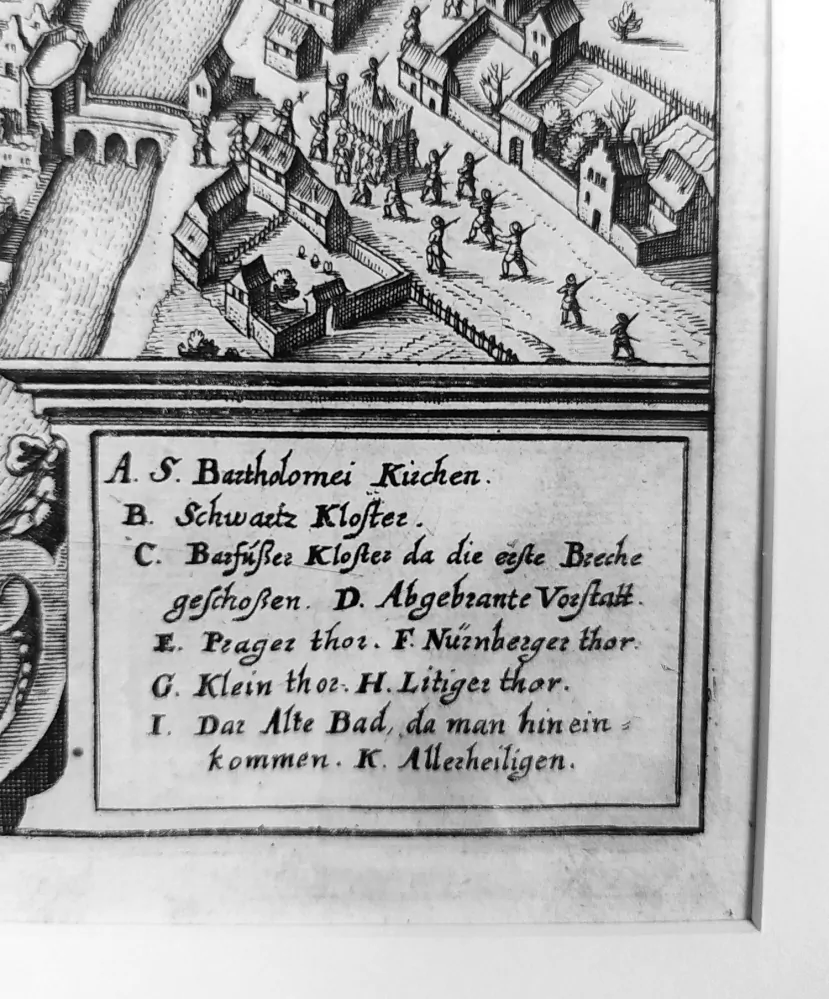 A. S. Bartholomei Kirchen.
B. Schwartz Kloſter.
C. Barfúßer Kloſter da die erſte Breche
geſchoßen. D. Abgebrante Vorſtatt.
E. Prager thor. F. Nürnberger thor.
G. Klein thor. H. Litiger thor.
I. Dar Alte Bad, da man hinein =
kommen. K. Allerheiligen.